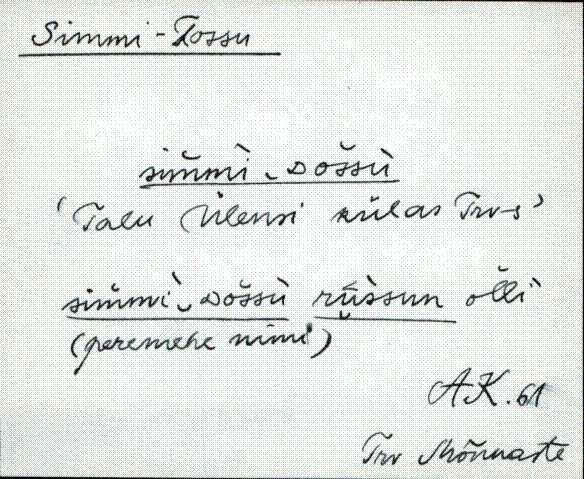 Simmi-Tossu
sim̆mì ᴗ ᴅos̆sù
'Talu Ülensi külas Trv-s'
sim̆mì ᴗ ᴅos̆sù olli
(peremehe nimi)
AK. 61
Trv Mõnnaste